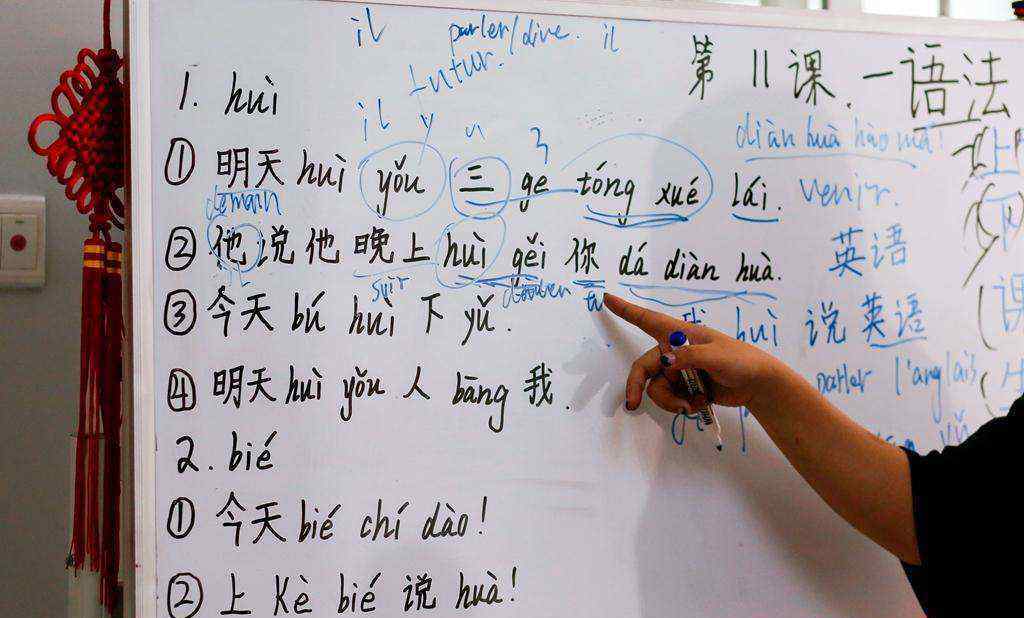 il parler/dire. il
futur.
第 11 课. 一语法
1. huì
il y
diàn huà hào mǎ!
① 明天 huì yǒu 三 ge tóng xué lái. venir.
demain
② 他说他晚上 huì gěi 你 dá diàn huà. 英语
soir tu
③ 今天 bú huì 下 yǔ. 我 huì 说英语
④ 明天 huì yǒu 人 bāng 我. parler l'anglais
2. bié
① 今天 bié chí dào!
② 上 Kè bié 说 huà!